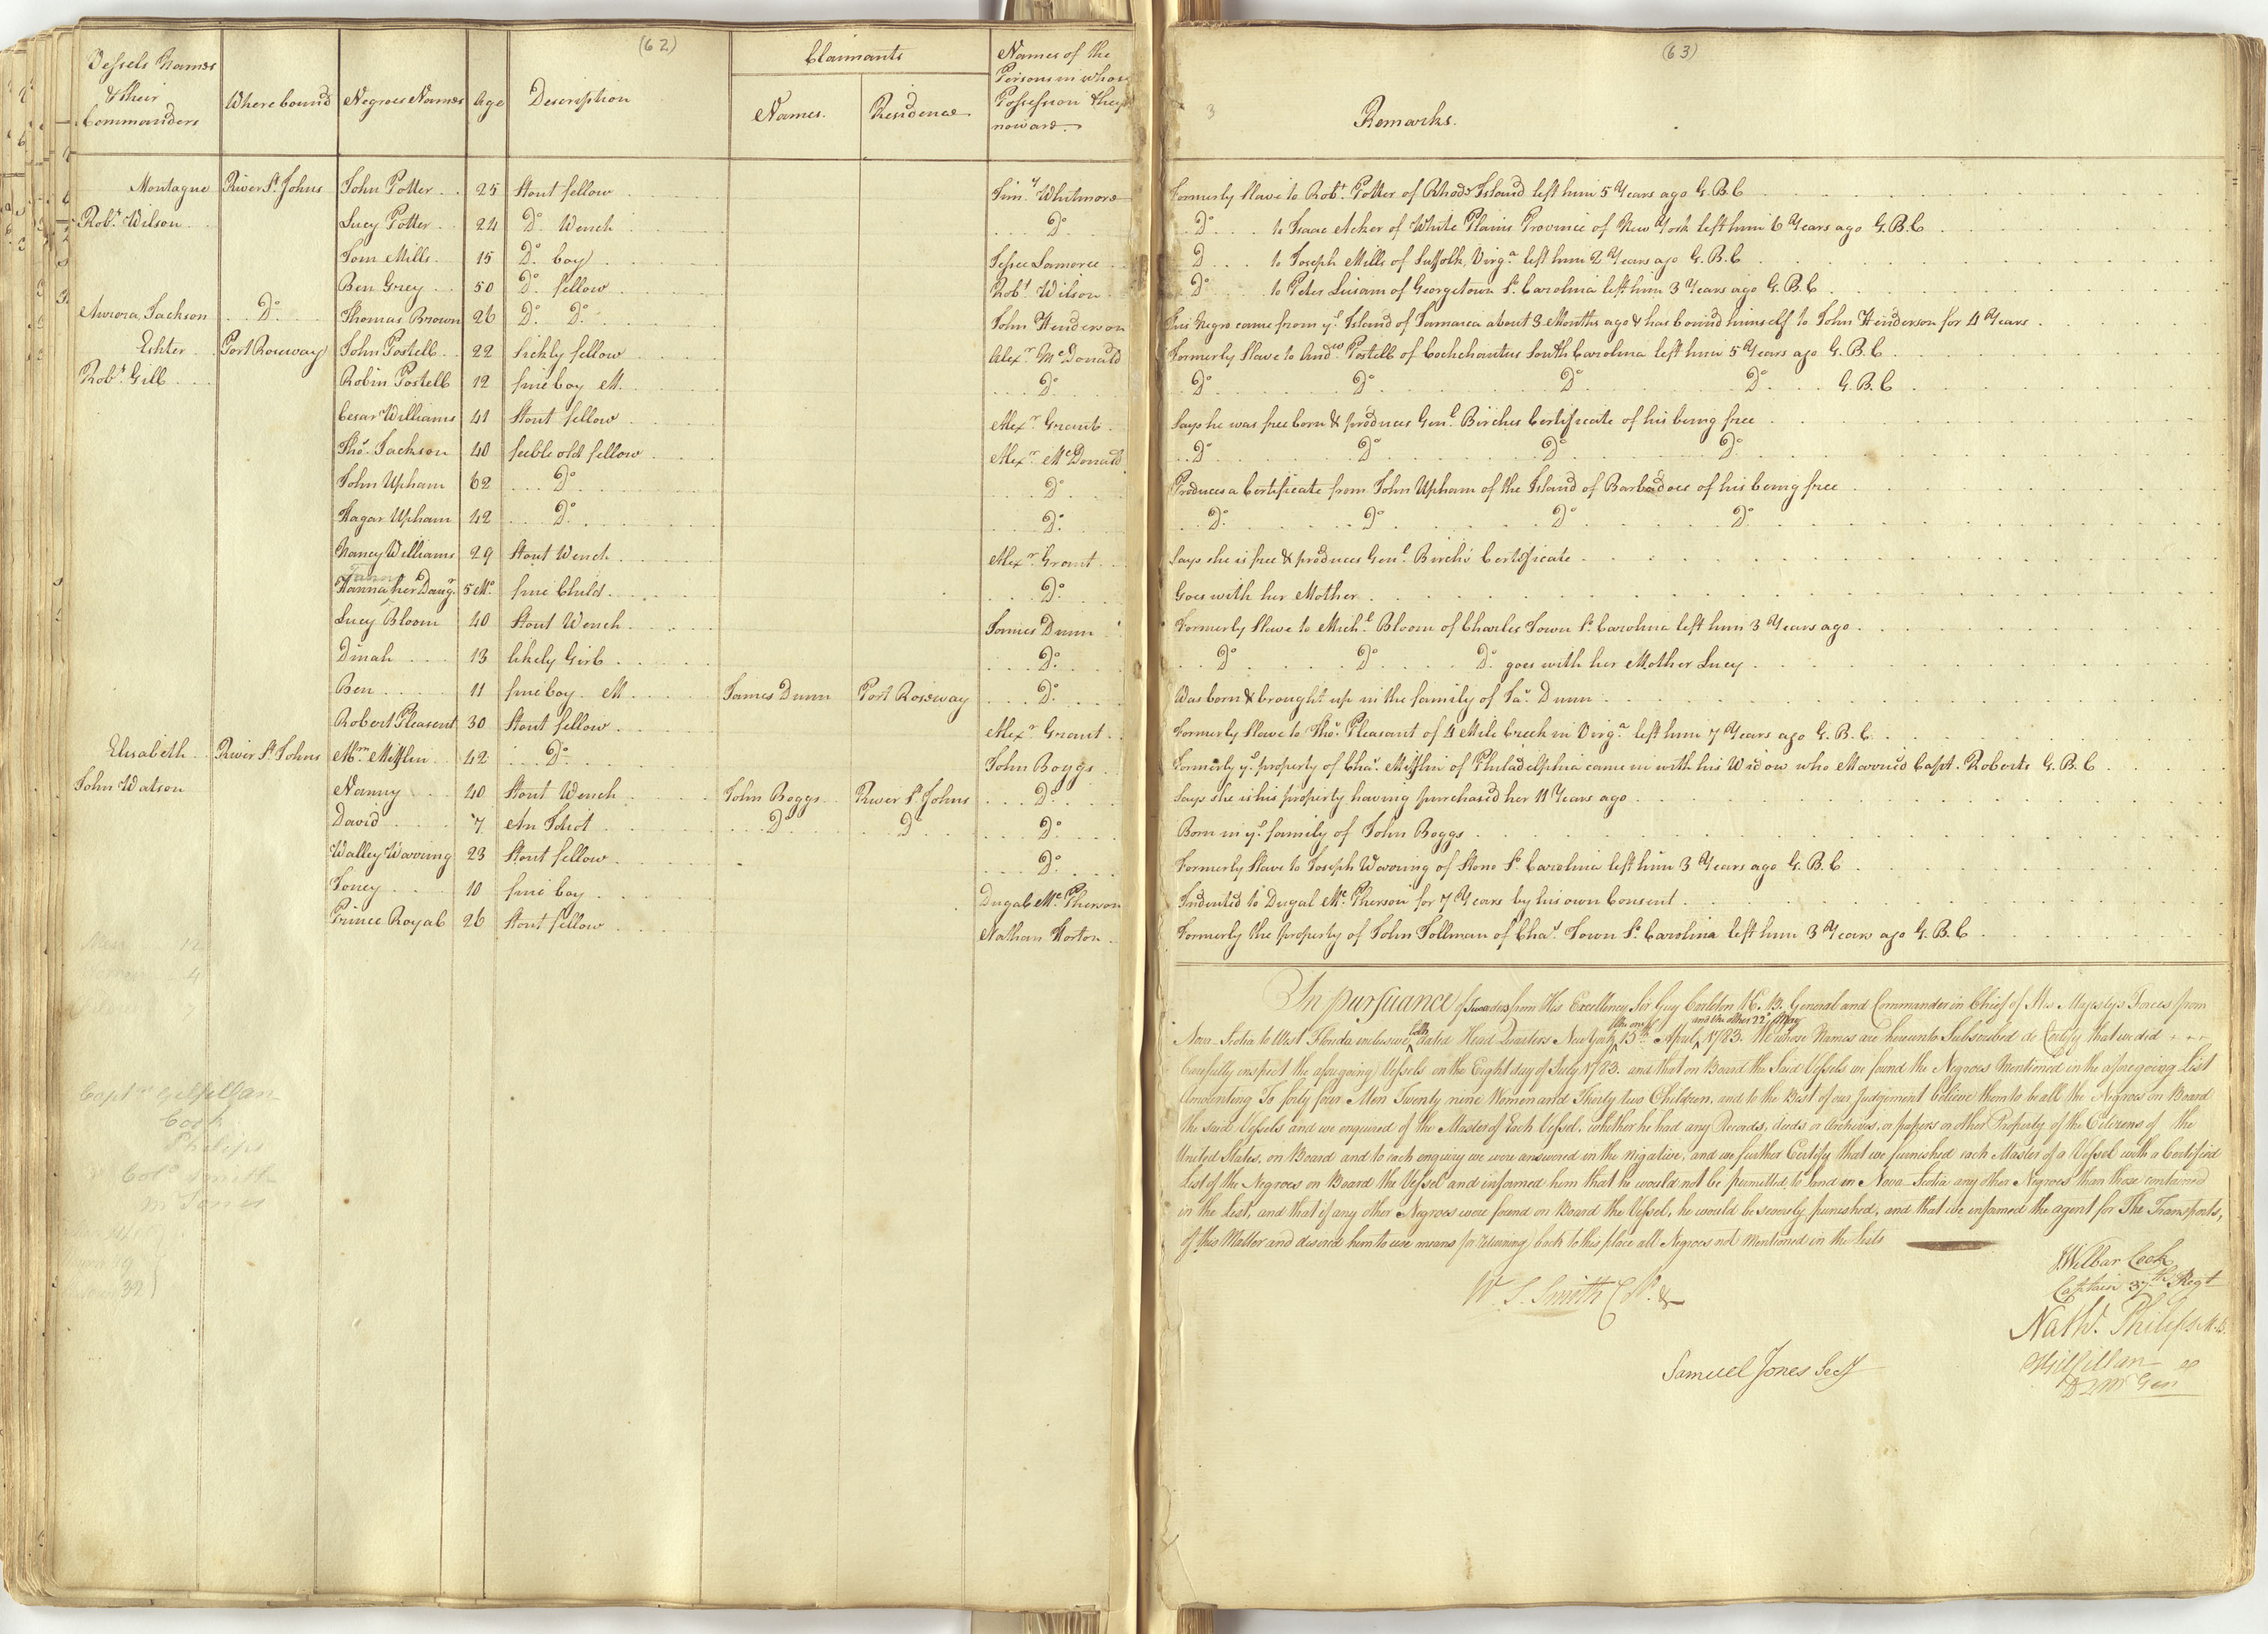 (62)
Vessels Names & their Commanders | Where bound | Negroes Names | Age | Description | Claimants Names. | Residence | Names of the Persons in whose Possession they now are.
Montague | River St. Johns | John Potter | 25 | Stout fellow | Timy. Whitmore
Robt. Wilson | Lucy Potter | 24 | Do. Wench | Do.
Tom Mills | 15 | Do. boy | Jesse Lamoree
Ben Grey | 50 | Do. fellow | Robt. Wilson
Aurora, Jackson | Do. | Thomas Brown | 26 | Do. Do. | John Henderson
Eshter | Port Roseway | John Postell | 22 | sickly fellow | Alexr. McDonald
Robt. Gill | Robin Postell | 12 | fine boy M. | Do.
Cesar Williams | 41 | Stout fellow | Alexr. Grant
Thos. Jackson | 40 | feeble old fellow | Alexr. McDonald
John Upham | 62 | Do. | Do.
Hagar Upham | 42 | Do. | Do.
Nancy Williams | 29 | Stout Wench | Alexr. Grant
Hanna her Daugr. | 5 Mo. | fine Child | Do.
Lucy Bloom | 40 | Stout Wench | James Dunn
Dinah | 13 | likely Girl | Do.
Ben | 11 | fine boy M | James Dunn | Port Roseway | Do.
Robert Pleasent | 30 | Stout fellow | Alexr. Grant
Elisabeth | River St. Johns | Wm. Mifflin | 42 | Do. | John Boggs
John Watson | Nanny | 40 | Stout Wench | John Boggs | River St. Johns | Do.
David | 7 | An Idiot | Do | Do | Do.
Walley Warring | 23 | Stout fellow | Do.
Toney | 10 | fine boy | Dugal McPherson
Prince Royal | 26 | Stout fellow | Nathan Horton
Men 12
Women 4
7
Captn. Gilfillan
Cook
Philips
Colo. Smith
Mr Jones
32
(63)
3
Remarks.
Formerly slave to Robt. Potter of Rhode Island left him 5 Years ago G.B.C
Do. to Isaac Acker of White Plains Province of New York left him 6 Years ago G.B.C
D to Joseph Mills of Suffolk, Virga. left him 2 Years ago G.B.C
Do. to Peter Lusam of Georgetown So. Carolina left him 3 Years ago G.B.C
This Negro came from ye. Island of Jamaica about 3 Months ago & has bound himself to John Henderson for 4 Years
Formerly slave to Andw. Postell of Cockchautus South Carolina left him 5 Years ago G.B.C
Do Do Do Do G.B.C
Says he was free born & produces Genl. Birches Certificate of his being free
Do Do Do Do
Produces a Certificate from John Upham of the Island of Barbadoes of his being free
Do. Do Do Do
Says she is free & produces Genl. Birchs Certificate
Goes with her Mother
Formerly Slave to Michl. Bloom of Charles Town So. Carolina left him 3 Years ago
Do Do Do. goes with her Mother Lucy
Was born & brought up in the family of Jas. Dunn
Formerly slave to Thos. Pleasant of 4 Mile Creek in Virga. left him 7 Years ago G.B.C
Formerly ye. property of Chas. Mifflin of Philadelphia came in with his Widow who Married Capt. Roberts G.B.C
Says she is his property having purchased her 11 Years ago
Born in ye. family of John Boggs
Formerly slave to Joseph Warring of Stono So. Carolina left him 3 Years ago G.B.C
Indented to Dugal McPherson for 7 Years by his own Consent
Formerly the property of John Tollman of Chas. Town So. Carolina left him 3 Years ago G.B.C
In pursuance of two orders from His Excellency Sir Guy Carleton K.B. General and Commander in Chief of His Majestys Forces from
Nova-Scotia to West Florida inclusive both dated Head Quarters New York the one 15th April and the other 22d May 1783. We whose Names are hereunto Subscribed do Certify that we did
Carefully inspect the aforegoing Vessels on the Eight day of July 1783. and that on Board the Said Vessels we found the Negroes Mentioned in the aforegoing List
Amounting To forty four Men Twenty nine Women and Thirty two Children, and to the Best of our Judgement believe them to be all the Negroes on Board
the said Vessels and we enquired of the Master of Each Vessel. whether he had any Records, deeds or Archives, or papers or other Property of the Citizens of the
United States, on Board and to each enquiry we were answered in the negative, and we further Certify that we furnished each Master of a Vessel with a Certified
List of the Negroes on Board the Vessel and informed him that he would not be permitted to land in Nova-Scotia any other Negroes than those contained
in the List, and that if any other Negroes were found on Board the Vessel, he would be severely punished, and that we informed the agent for The Transports,
of this Matter and desired him to use means for returning back to this place all Negroes not mentioned in the Lists
Wilbar Cook
Captain 37th Regt
W. S. Smith Col. &
Nathl. Philips M.B.
Samuel Jones Secy
Gilfillan
D Q M Gen